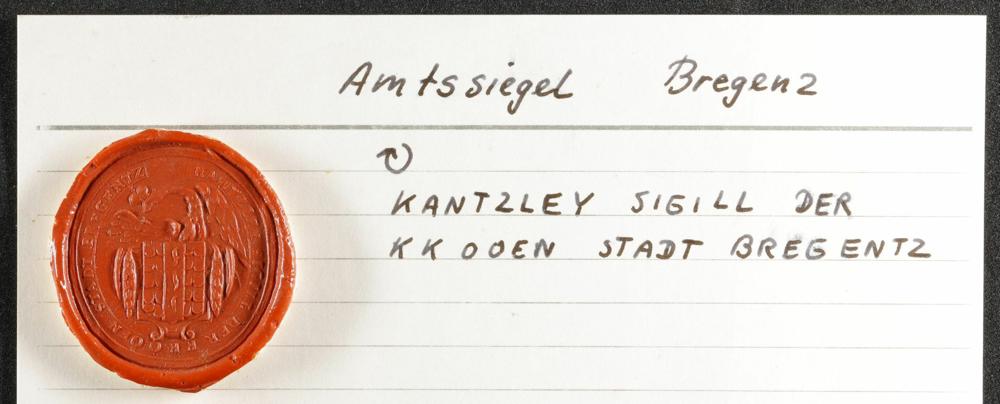 Amtssiegel Bregenz
KANTZLEY SIGILL DER
KK OOEN STADT BREGENTZ
STADT BREGENTZ
DER